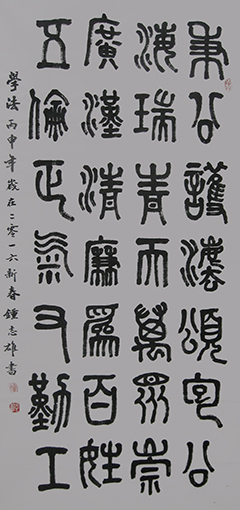 秉公護灋頌包公
海瑞青天萬眾崇
廣漢清廉為百姓
五倫正氣又勤工
學法 丙申年歲在二零一六新春鍾志雄書